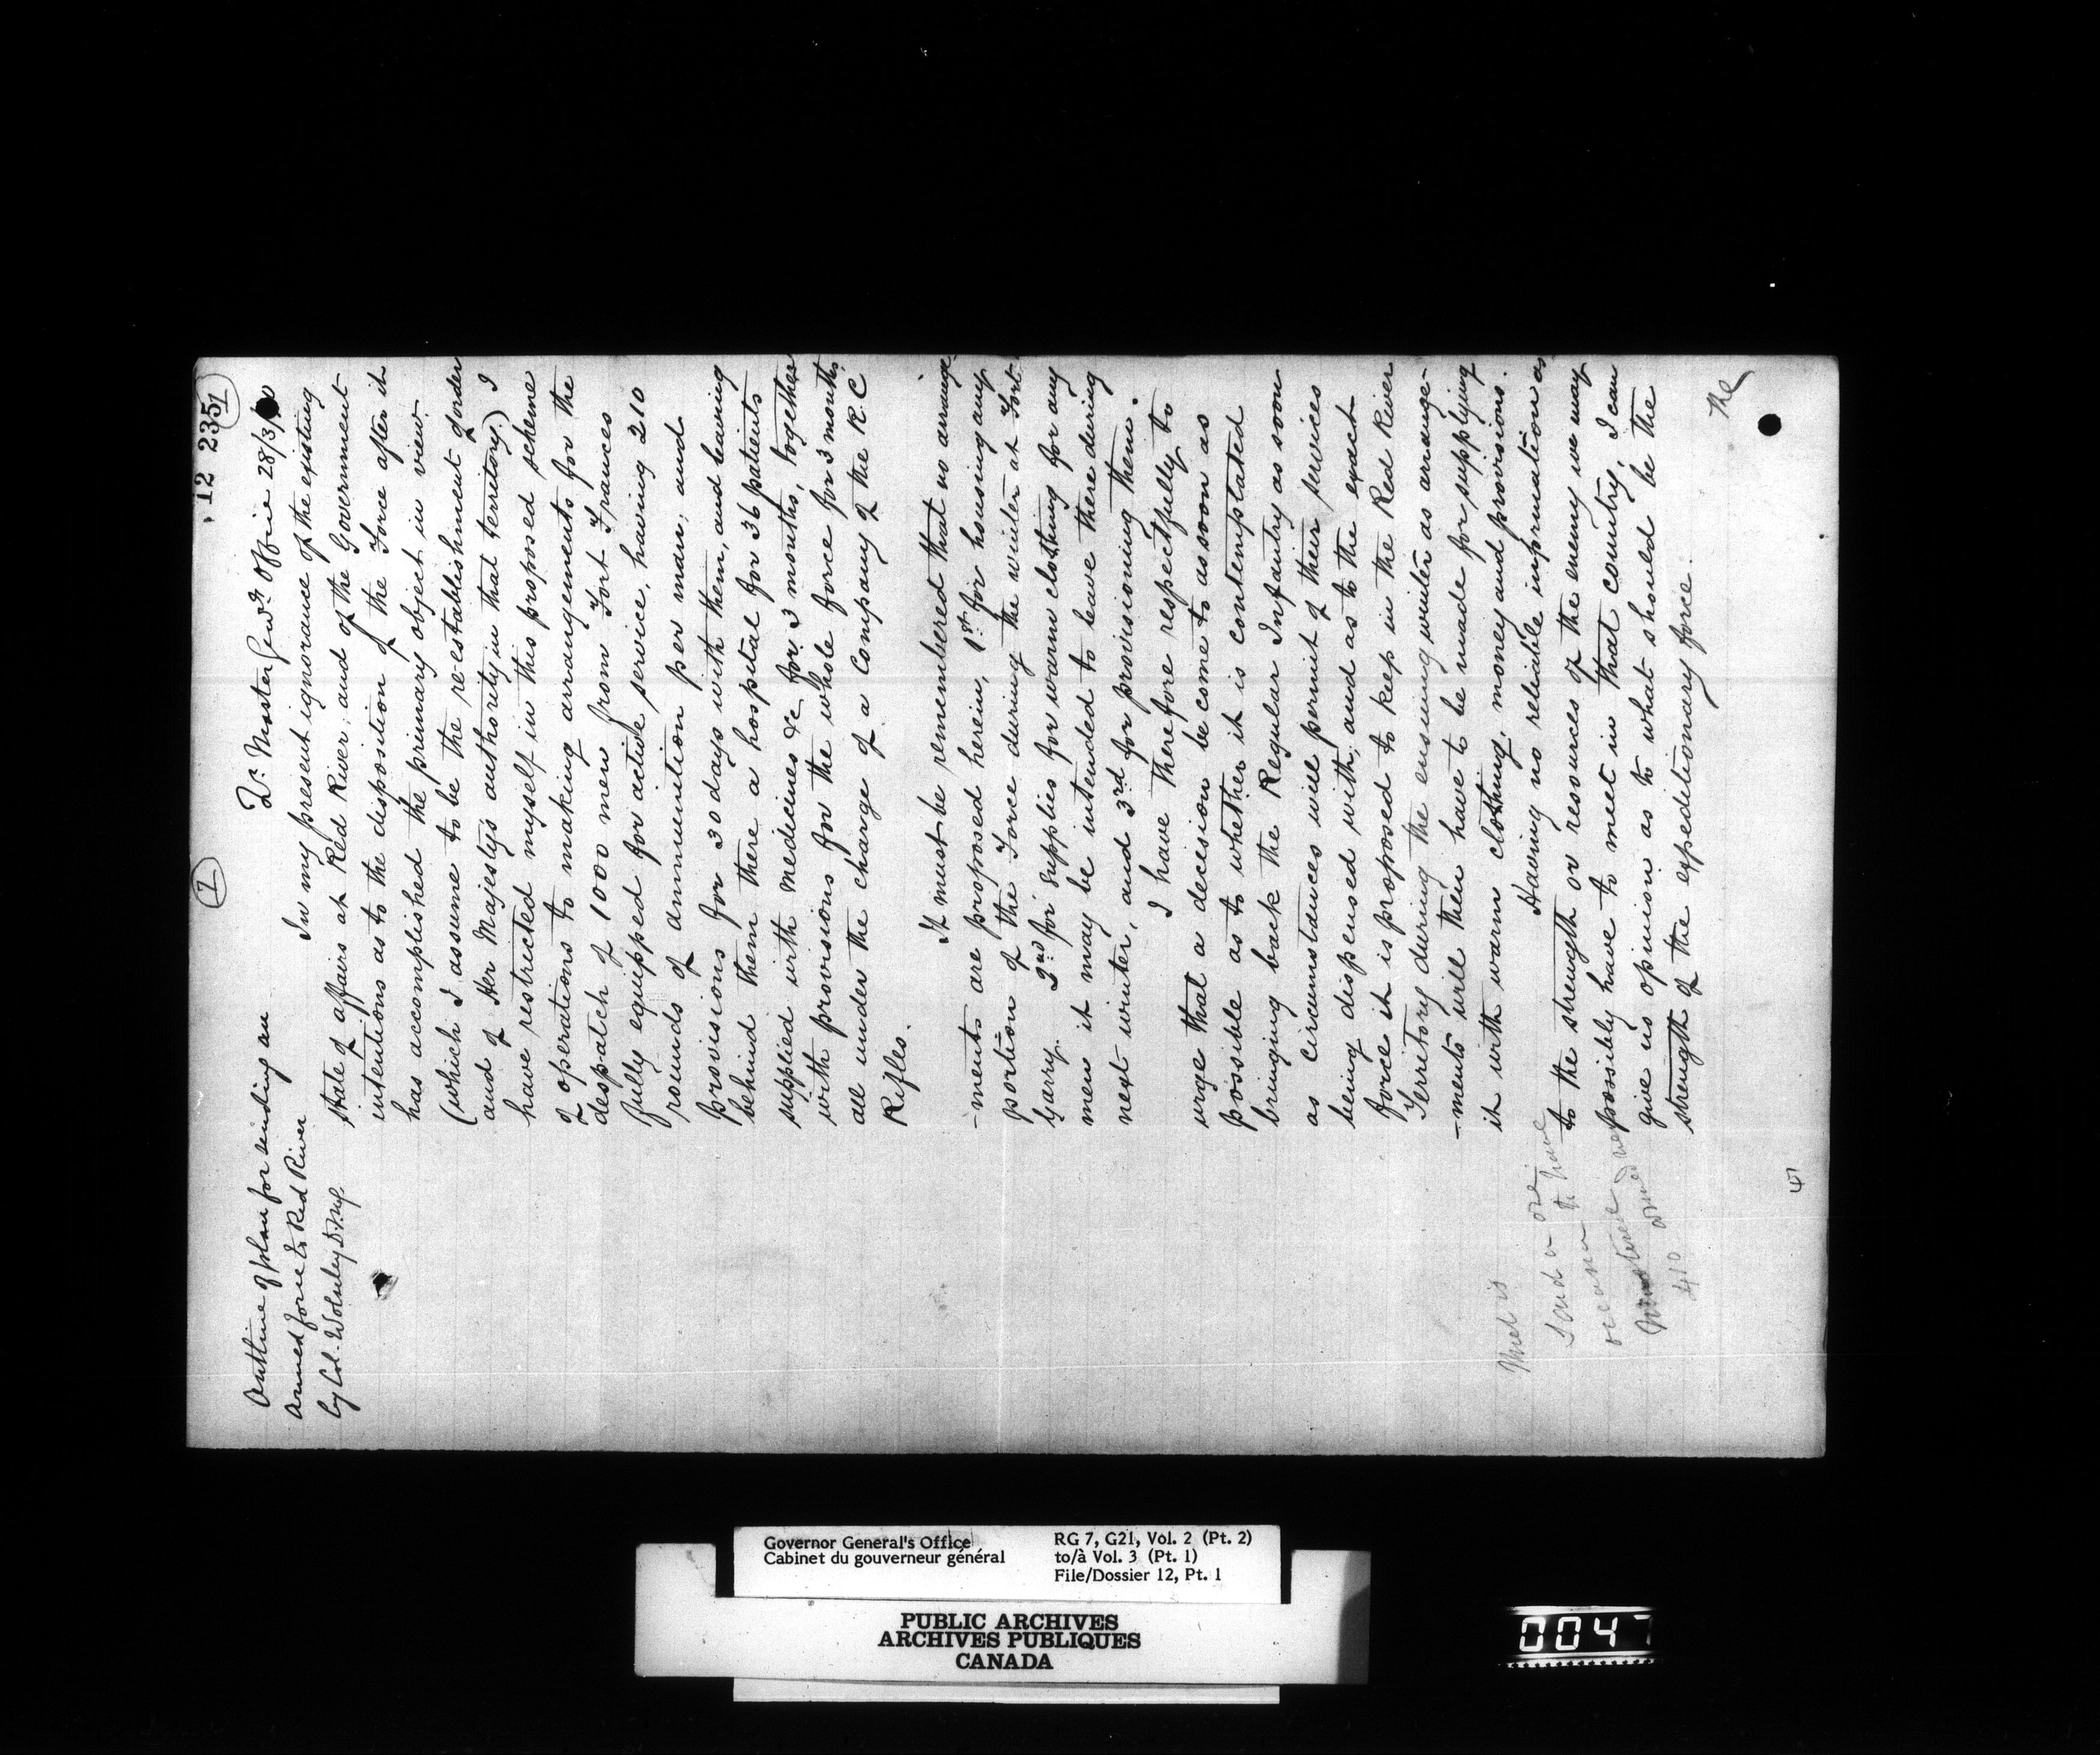 12 235
1
7
Qr. Master Genl's Office 28/3/70
Outline of plan for sending an
Armed force to Red River
by Col. Wolseley D.Q.M.G.
In my present ignorance of the existing
state of affairs at Red River; and of the Government
intentions as to the disposition of the Force after it
has accomplished the primary object in view
(which I assume to be the re-establishment of order
and of Her Majesty's authority in that territory.) I
have restricted myself in this proposed scheme
of operations to making arrangements for the
despatch of 1000 men from Fort Frances
fully equipped for active service, having 210
rounds of ammunition per man; and
provisions for 30 days with them, and leaving
behind them there a hospital for 36 patients
supplied with medicines &c for 3 months, together
with provisions for the whole force for 3 months
all under the charge of a Company of the R.C
Rifles.
It must be remembered that no arrange-
-ments are proposed herein, 1st for housing any
portion of the Force during the winter at Fort
Garry. 2nd for supplies for warm clothing for any
men it may be intended to leave there during
next winter, and 3rd for provisioning them.
I have therefore respectfully to
urge that a decision be come to as soon as
possible as to whether it is contemplated
bringing back the Regular Infantry as soon
as circumstances will permit of their services
being dispensed with; and as to the exact
force it is proposed to keep in the Red River
Territory during the ensuing winter as arrange-
-ments will then have to be made for supplying
it with warm clothing, money and provisions.
Having no reliable information as
to the strength or resources of the enemy we may
possibly have to meet in that country, I can
give no opinion as to what should be the
strength of the expeditionary force.
The
to have
410
Governor General's Office
Cabinet du gouverneur général
RG 7, G21, Vol. 2 (Pt. 2)
to/à Vol. 3 (Pt. 1)
File/Dossier 12, Pt. 1
PUBLIC ARCHIVES
ARCHIVES PUBLIQUES
CANADA
0047